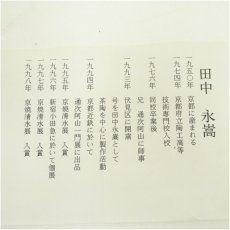 田中 永嵩
一九五〇年 京都に産まれる
一九七四年 京都府立陶工高等
技術専門校入校
一九七六年 同校卒業後
兄 通次阿山に師事
一九九三年 伏見区に開窯
号を田中永嵩として
茶陶を中心に製作活動
一九九四年 京都近鉄に於いて
通次阿山一門展に出品
一九九五年 京焼清水展 入賞
一九九六年 新宿小田急に於いて個展
一九九七年 京焼清水展 入賞
一九九八年 京焼清水展 入賞